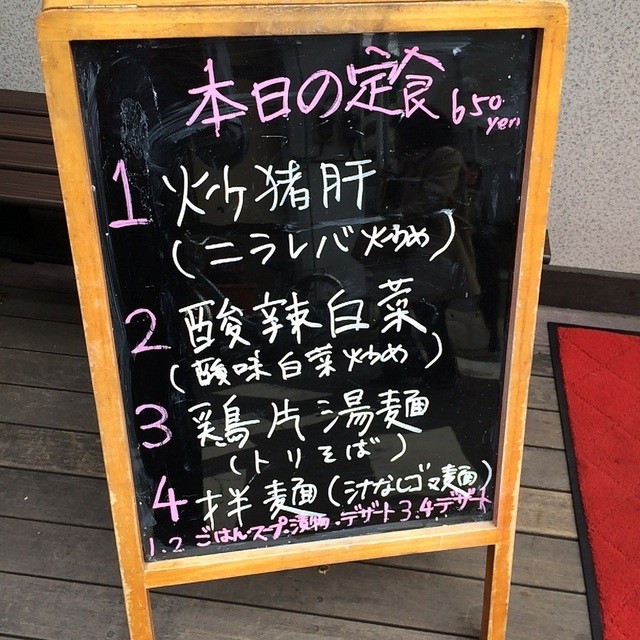 本日の定食 650yen
1 炒猪肝
(ニラレバ炒め)
2 酸辣白菜
(酸味白菜炒め)
3 鶏片湯麺
(トリそば)
4 拌麺(汁なしゴマ麺)
1.2 ごはん.スープ.漬物.デザート 3.4 デザート